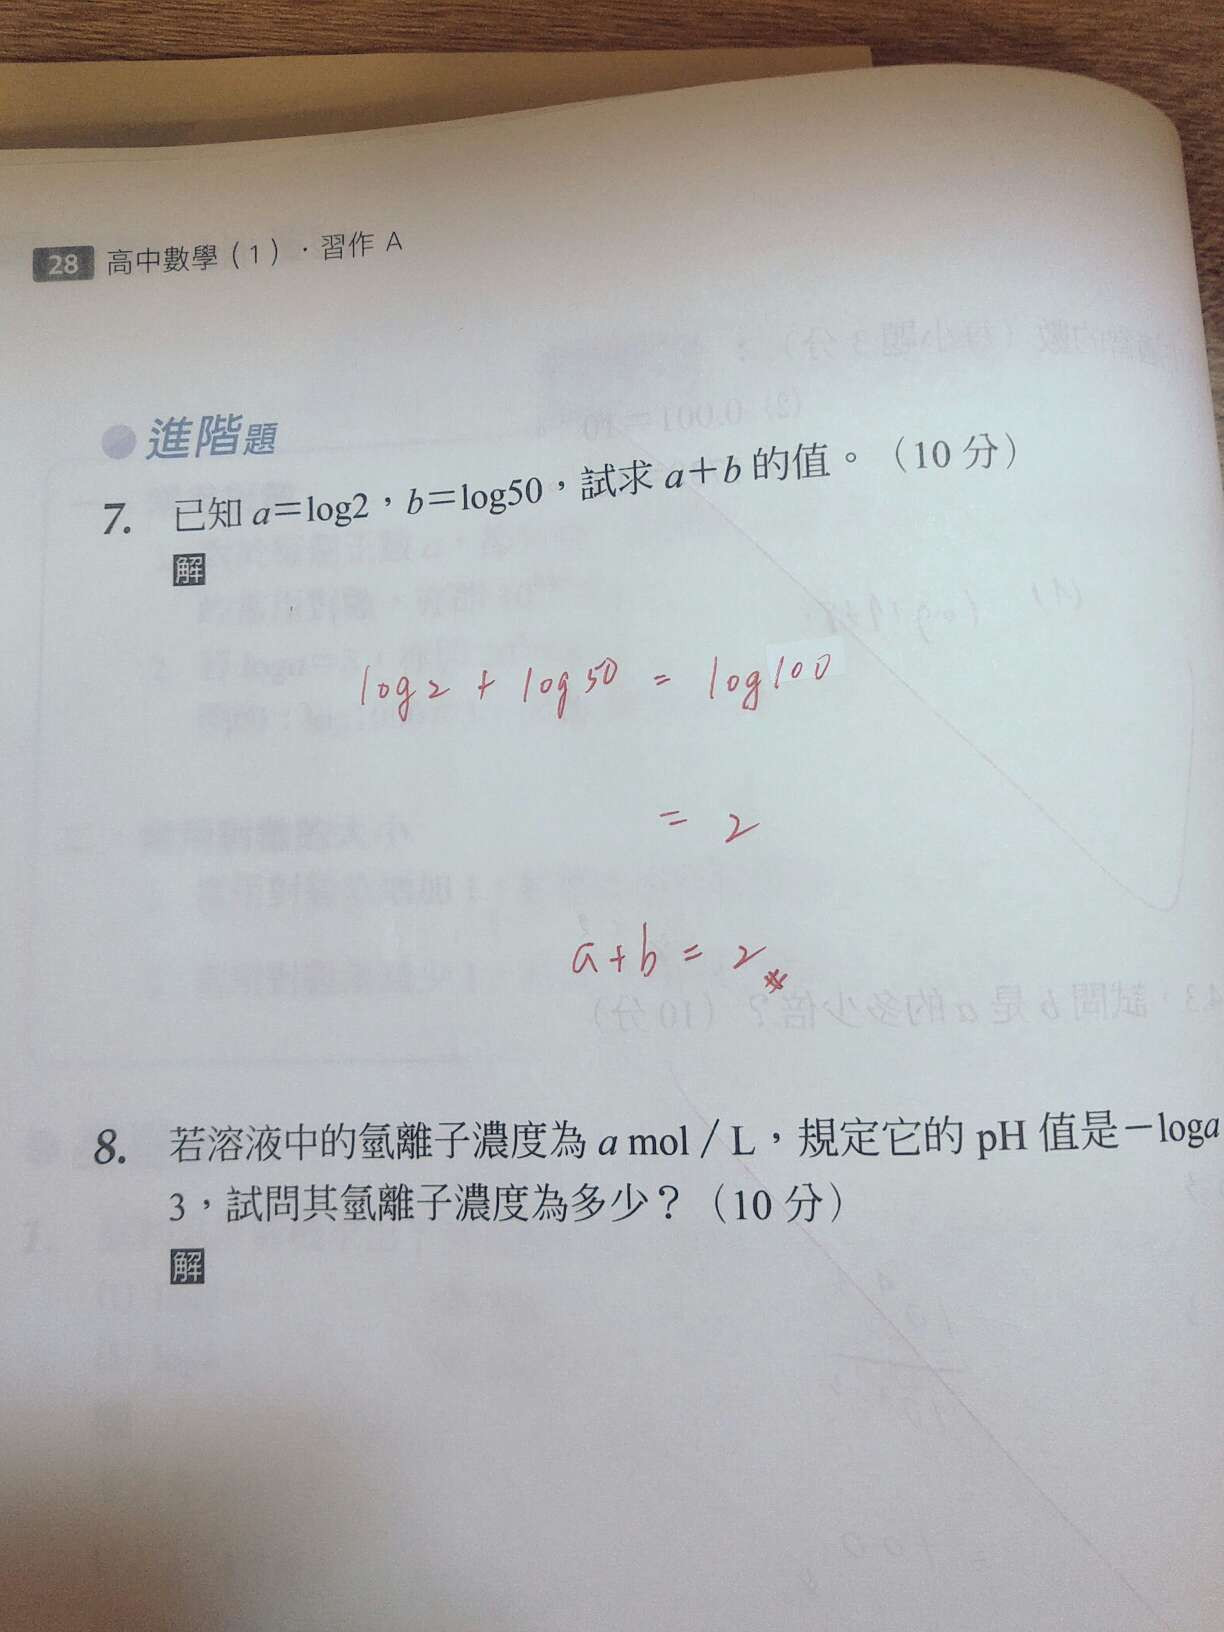 28 高中數學(1)．習作 A
進階題
7. 已知 a=log2，b=log50，試求 a+b 的值。(10 分)
解
log2 + log50 = log100
= 2
a+b = 2 #
8. 若溶液中的氫離子濃度為 a mol/L，規定它的 pH 值是-loga
3，試問其氫離子濃度為多少？(10 分)
解